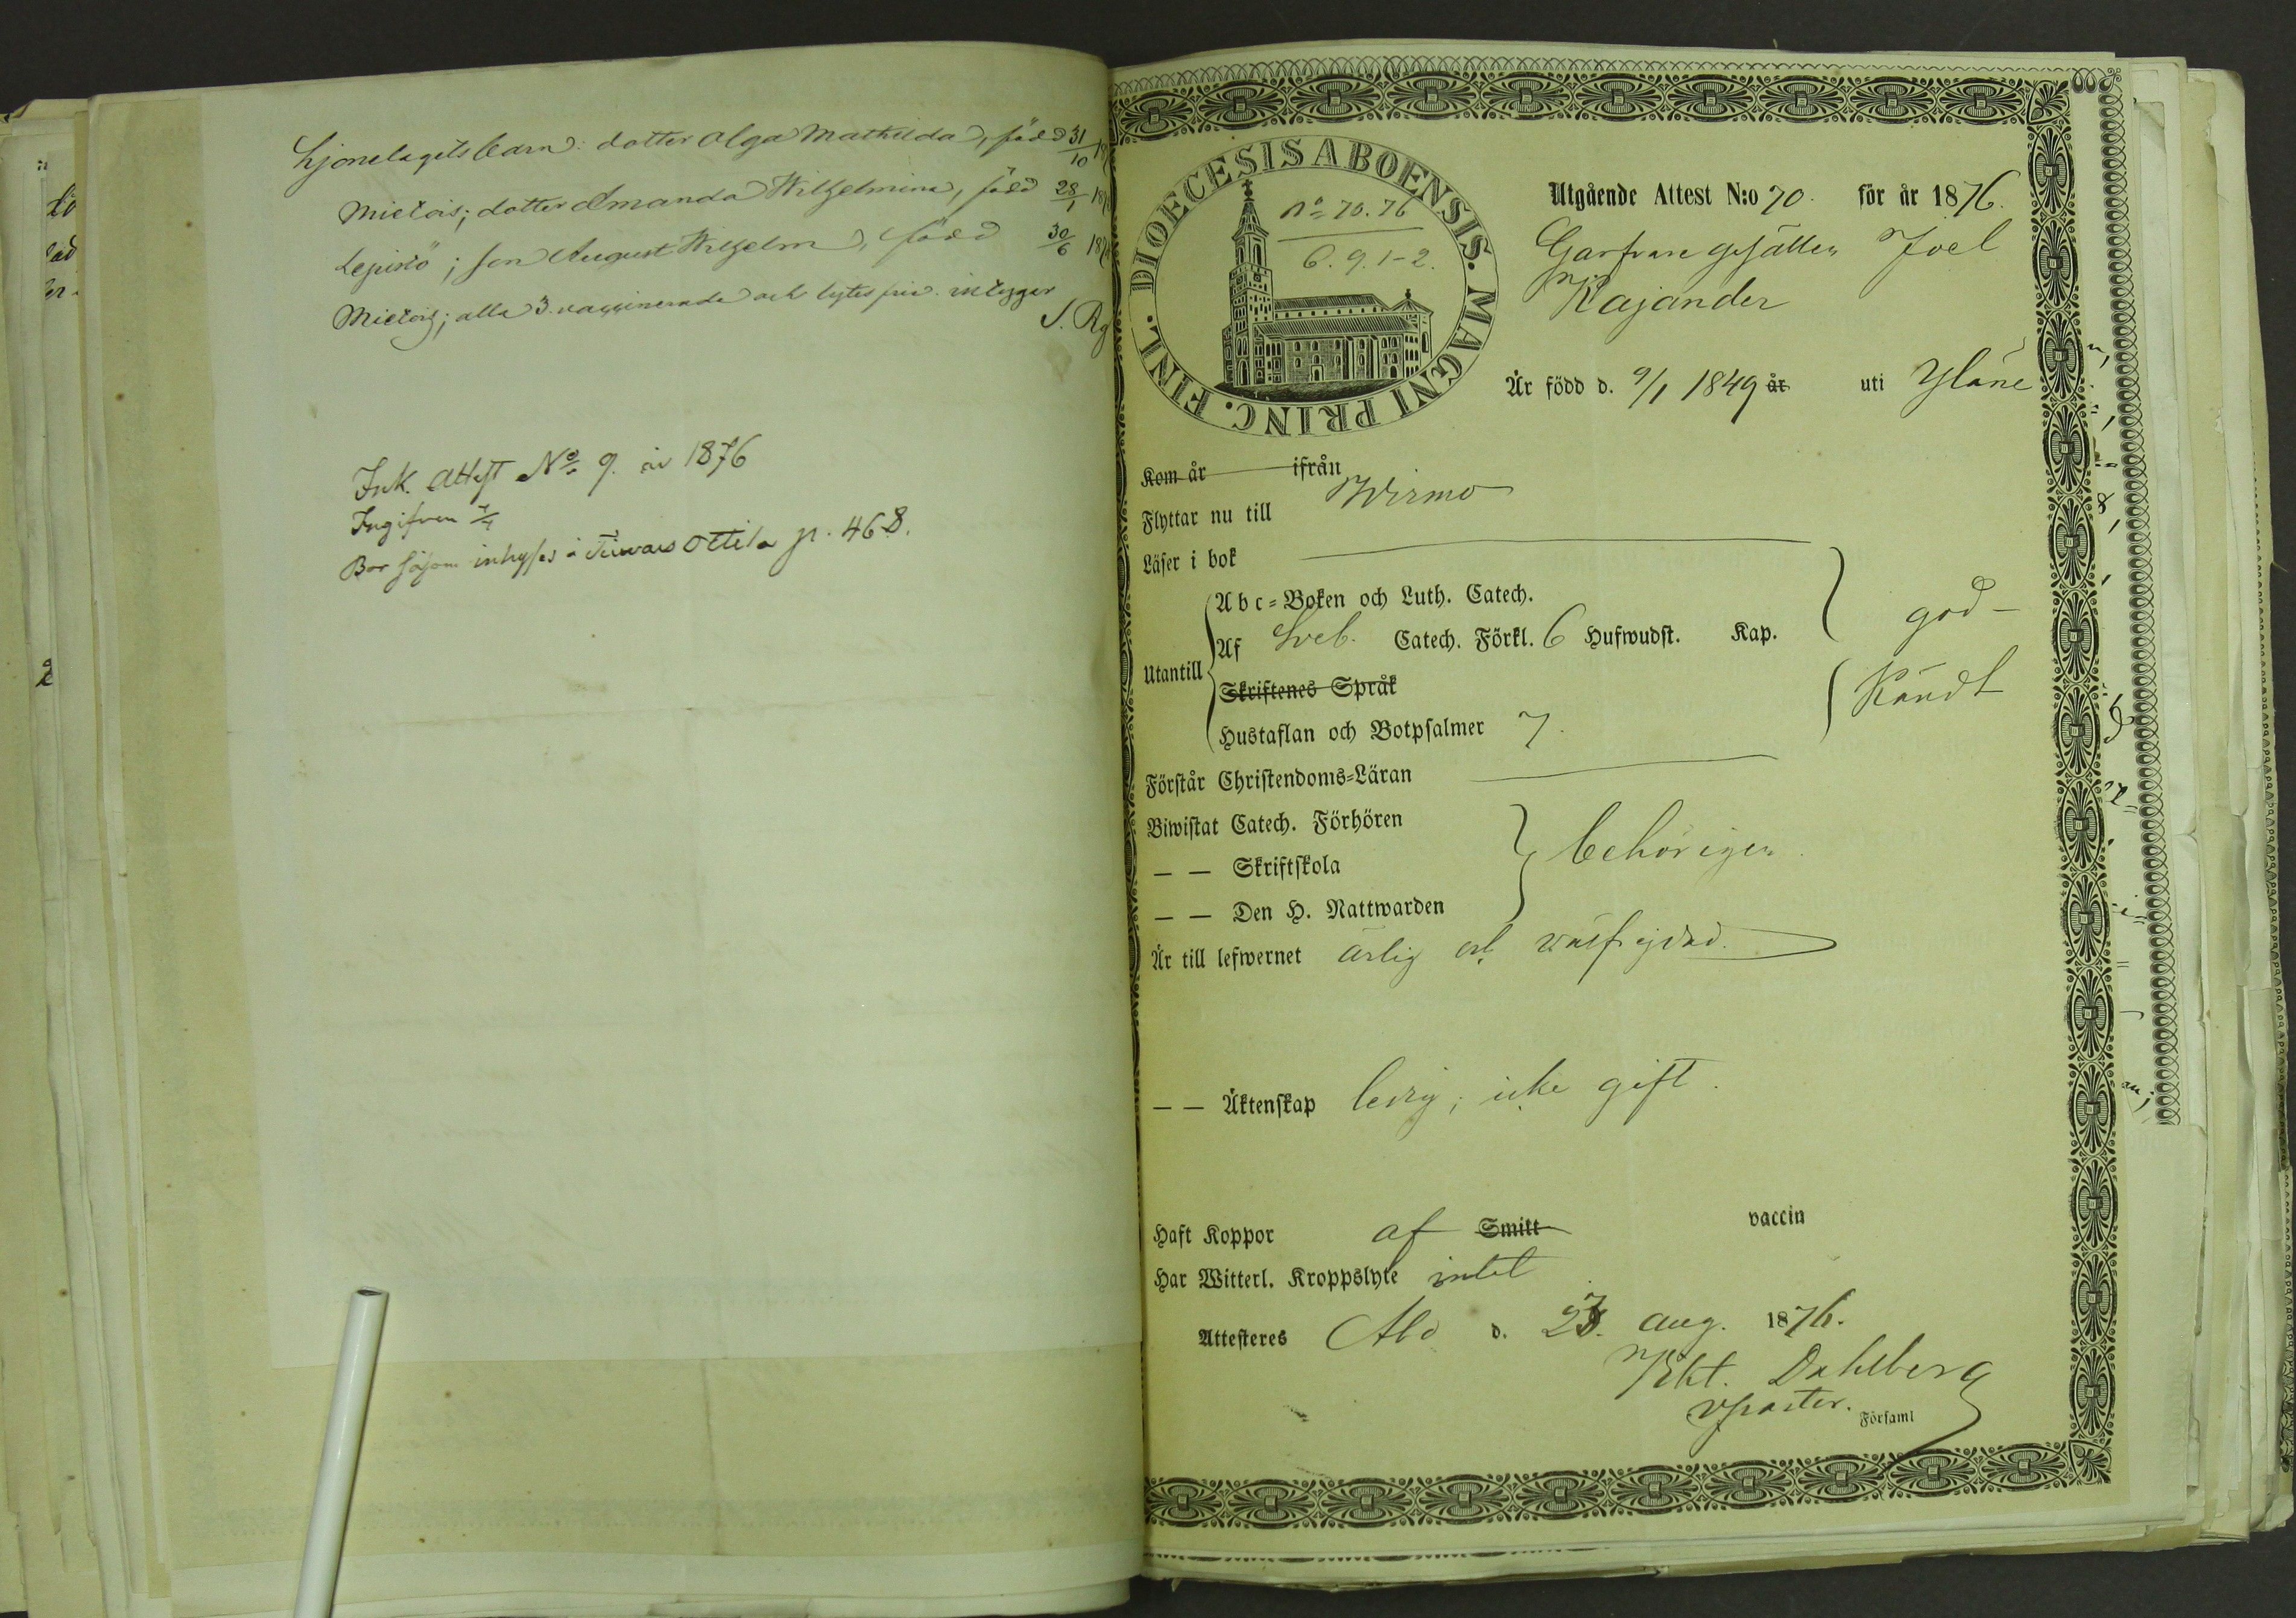 Hjonelagets barn: dotter Olga Mathilda, född 31/10 18
Mietois; dotter Amanda Wilhelmina, född 28/1 18
Lepistö; son August Wilhelm, född 30/6 18
Mietois; alla 3 vaccinerade och lytesfria. intygar
S. Rg
Ink. Attest No 9. år 1876
Ingifven
Bor såsom inhyses å Tiuvais Ottila p. 468.
DIOECESIS ABOENSIS. MAGNI PRINC. FINL.
No 70. 76
6. 9. 1-2.
Utgående Attest N:o 70. för år 1876.
Garfvare gesällen Joel
Kajander
Är född d. 9/1 1849 år uti Yläne
Kom år ifrån
Flyttar nu till Wirmo
Läser i bok
Utantill
Abc=Boken och Luth. Catech.
Af Sveb. Catech. Förkl. 6 Hufwudst. Kap.
god
Skriftenes Språk
Kändt
Hustaflan och Botpsalmer 7.
Förstår Christendoms=Läran
Biwistat Catech. Förhören
— — Skriftskola
behörigen
— — Den H. Nattwarden
Är till lefwernet ärlig och wälfrejdad.
— — Äktenskap ledig; icke gift.
Haft Koppor af Smitt vaccin
Har Witterl. Kroppslyte intet
Attesteres Åbo d. 23. aug. 1876.
Dahlberg
vpastor.
Församl